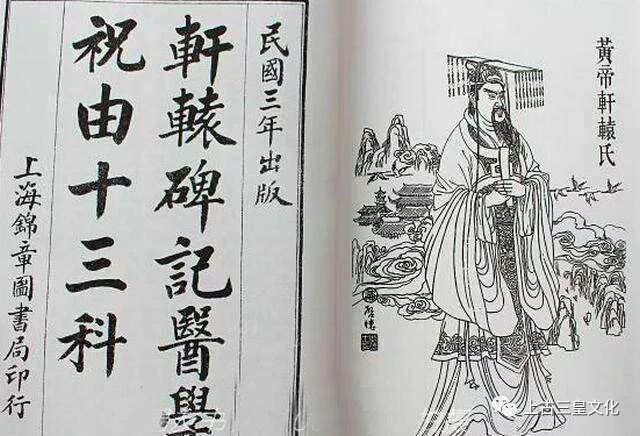 黃帝軒轅氏
民國三年出版
軒轅碑記醫學
祝由十三科
上海錦章圖書局印行
上古三皇文化